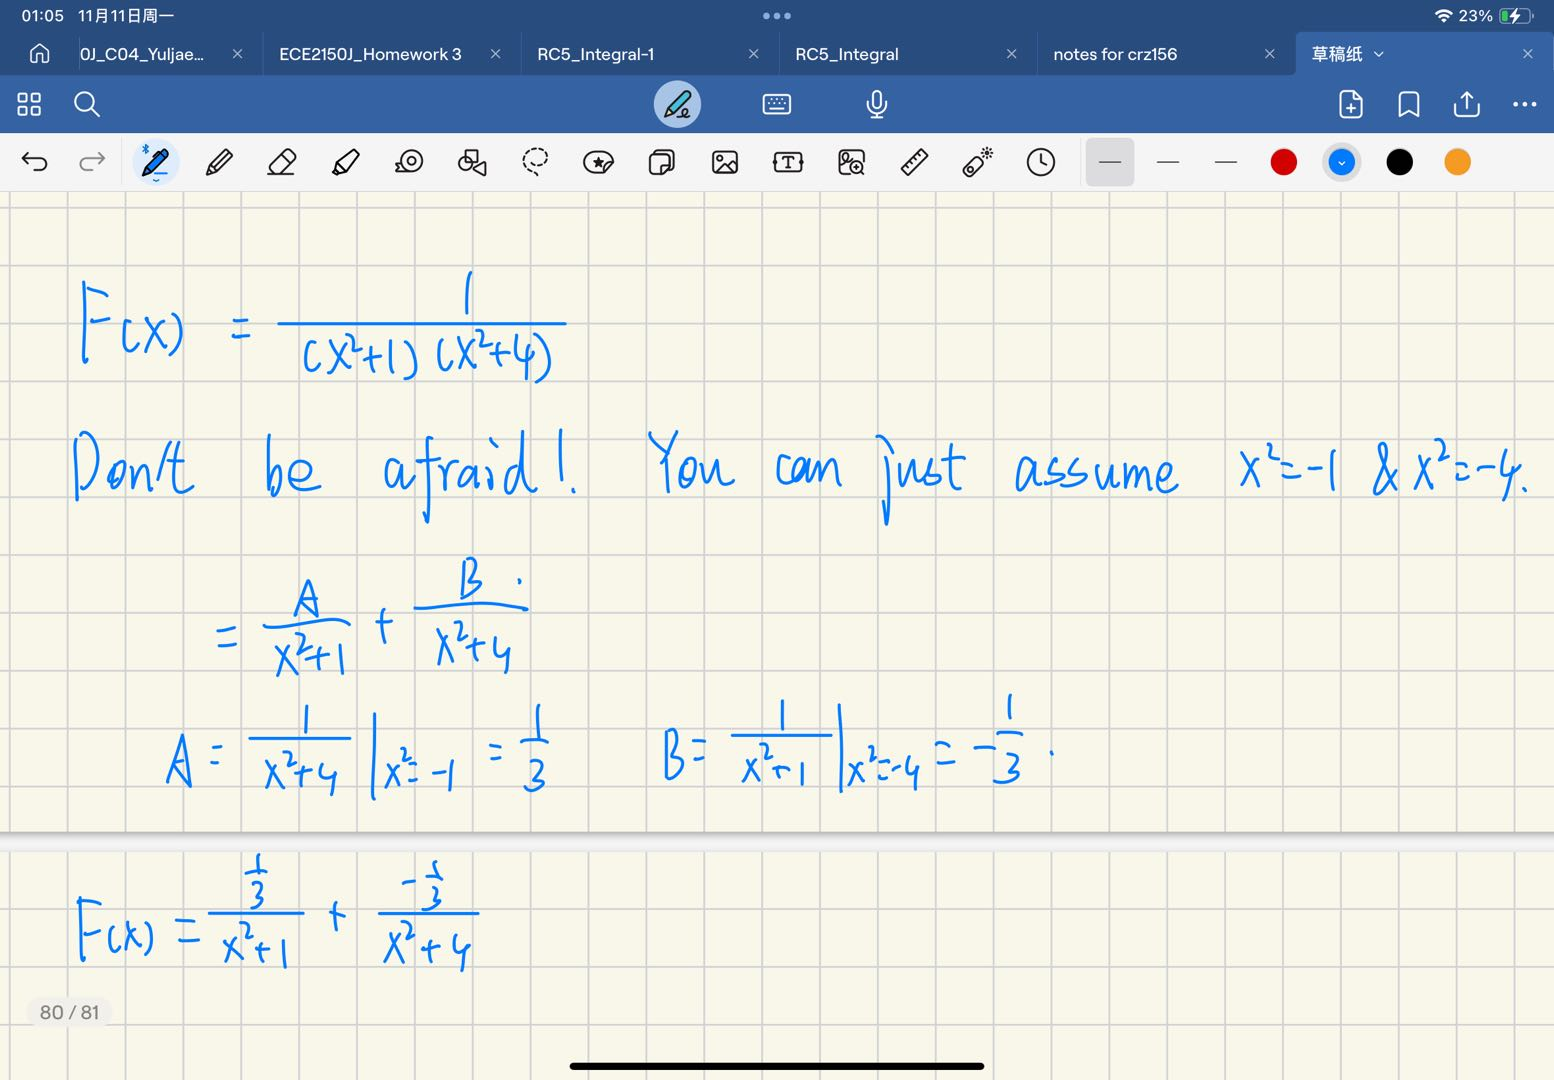 01:05 11月11日周一 23%
0J_C04_Yuljae... ECE2150J_Homework 3 RC5_Integral-1 RC5_Integral notes for crz156 草稿纸
F(x) = 1/((x²+1)(x²+4))
Don't be afraid! You can just assume x²=-1 & x²=-4.
= A/(x²+1) + B/(x²+4)
A = 1/(x²+4) | x²=-1 = 1/3 B = 1/(x²+1) | x²=-4 = -1/3.
F(x) = (1/3)/(x²+1) + (-1/3)/(x²+4)
80 / 81